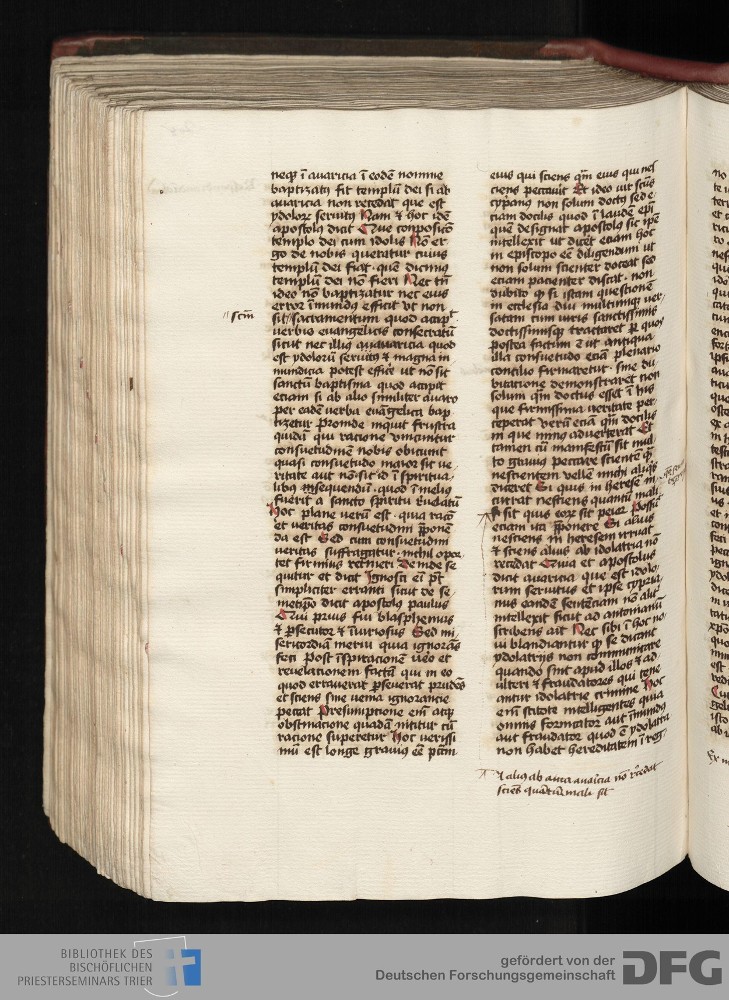 neqꝫ ī auaricia ī eodē nomine
baptizatꝯ fit templū dei si ab
auaricia non recedat que est
ydolorꝫ seruitꝯ Nam ⁊ hoc idē
apostolꝯ dicit Que conposicō
templo dei cum idolis Nō er
go de nobis queratur cuius
templū dei fiat · quē dicimꝯ
templū dei nō fieri Nec tn̄
ideo nō baptizatur nec eius
error īmundꝯ efficit ut non
sit // sacramentum quod accipit
// scm̄
verbis euangelicis consecratū
sicut nec illiꝯ auaricia quod
est ydolorū seruitꝯ ⁊ magna in
mundicia potest efficē ut nō sit
sanctū baptisma quod accipit
eciam si ab alio similiter auaro
per eadē verba euāgelica bap
tizetur Proinde inquit frustra
quidā qui racione vincuntur
consuetudinē nobis obiciunt
quasi consuetudo maior sit ve
ritate aut nō sit id ī spiritua
libꝯ insequendū · quod ī meliꝯ
fuerit a sancto spiritu reuelatū
Hoc plane verū est · quia racō
et veritas consuetudini p̄ponē
da est Sed cum consuetudini
veritas suffragatur · nichil opor
tet firmius retineri Deinde se
quitur et dicit Ignosci eī pt̄
simpliciter erranti sicut de se
metip̄o dicit apostolꝯ paulus
Qui prius fui blasphemus
⁊ ꝑsecutor ⁊ iniuriosus Sed mi
sericordiam merui quia ignorās
feci Post īspiracionem uero et
reuelacionem factā qui in eo
quod errauerat ꝑseuerat prudēs
et sciens sine venia ignorancie
peccat Presumpcione enī atqꝫ
obstinacione quadā nititur cū
racione superetur Hoc verissi
mū est longe grauiꝯ eē pctm̄
eius qui sciens qm̄ eius qui nes
ciens peccauit Et ideo uir scūs
cyp̄anꝯ non solum doctꝯ sed e
ciam docilis quod ī laudē ep̄i
quē designat apostolꝯ sic ip̄e
intellexit ut dicēt eciam hoc
in episcopo eē diligendum ut
non solum scienter doceat sed
eciam pacienter discat · non
dubito ꝙ si istam questionē
in ecclesia diu multumqꝫ uer
satam cum uiris sanctissimis
doctissimisqꝫ tractaret ꝑ quos
postea factum ē ut antiqua
illa consuetudo eciā plenario
concilio firmaretur · sine du
bitacione demonstraret non
solum qm̄ doctus esset ī his
que firmissima veritate per
ceperat verū eciā qm̄ docilis
in que minꝯ aduerterat Et
tamen cū manifestū sit mul
to grauiꝯ peccare scientē qm̄
nescientem vellē michi aliqͥs
diceret Si quis in heresē in
currat nesciens quantū mali
sit quis eorꝫ sit peior Possū
eciam ita p̄ponere Si alius
nesciens in heresem irruat
⁊ sciens alius ab idolatria nō
recedat Quia et apostolus
dicit auaricia que est idolo
rum seruitus et ipse cypria
nus eandē sentēciam nō alit̄
intellexit sicut ad antonianū
scribens ait Nec sibi ī hoc no
ui blandiantur ꝙ se dicant
ydolatrijs non communicare
quando sint apud illos ⁊ ad
ulteri ⁊ fraudatores qui tene
antur idolatrie crimine Hoc
enī scitote intelligentes quia
omnis fornicator aut īmundꝯ
aut fraudator quod ē ydolatra
non habet hereditatem ī reg
⁊ aliꝯ ab auaricia nō recedat
sciēs quātū mali sit
BIBLIOTHEK DES
BISCHÖFLICHEN
PRIESTERSEMINARS TRIER
gefördert von der
Deutschen Forschungsgemeinschaft
DFG